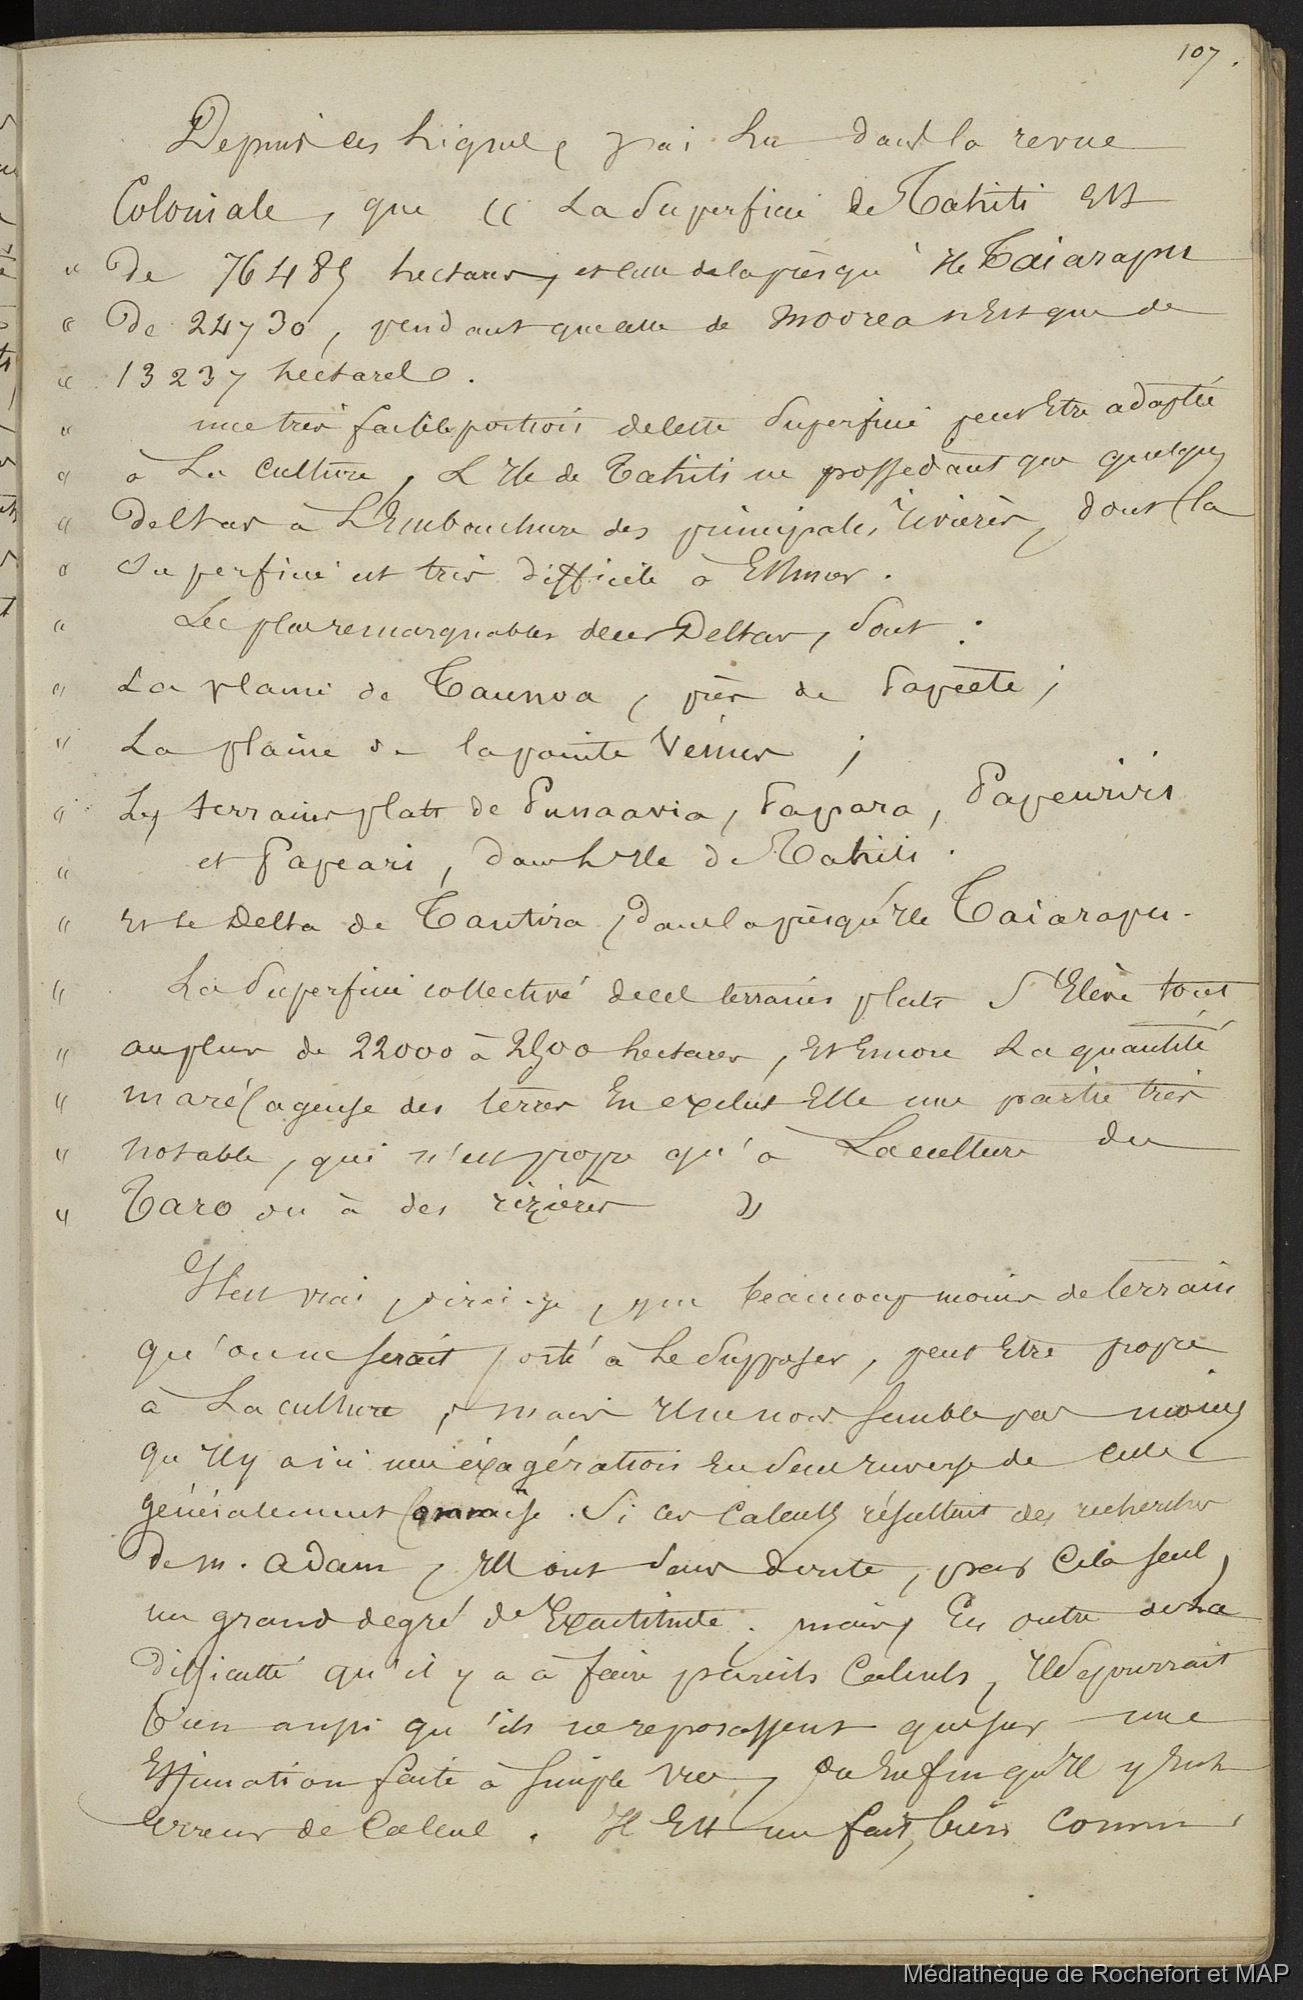 107.
Depuis ces lignes, j'ai lu dans la revue
Coloniale, que (( La Superficie de Tahiti Est
" De 76485 hectares, et celle de la presqu'ile Taiarapu
" De 24730, pendant que celle de Moorea n'Est que de
" 13237 hectares.
" une très faible portion de cette Superficie peut Etre adaptée
" à La Culture, L'Ile de Tahiti ne possedant que quelques
" Deltas à L'Embouchure des principales rivières, dont la
" Superficie est très difficile à Estimer.
" Les plus remarquables de ces Deltas, sont :
" La plaine de Taunoa, près de Papeete ;
" La plaine de la pointe Vénus ;
" Les terrains plats de Punaavia, Papara, Papeuriri
" et Papeari, dans L'Ile de Tahiti.
" Et le Delta de Tautira, dans la presqu'Ile Taiarapu.
" La Superficie collective de ces terrains plats S'Elève tout
" au plus de 22000 à 2500 hectares, Et Encore La quantité
" marécageuse des terres En exclut Elle une partie très
" notable, qui n'est propre qu'à La culture du
" Taro ou à des rizières ))
Il est vrai, dirai-je, que beaucoup moins de terrain
qu'on ne serait porté à Le Supposer, peut Etre propre
à La culture, mais Il ne nous semble pas moins
qu'Il y a ici une éxagération En Sens inverse de celle
généralement commise. Si ces Calculs résultent des recherches
De M. Adam, Ils ont Sans doute, par Cela seul,
un grand degré d'Exactitude. mais, En outre de La
difficulté qu'il y a à faire pareils Calculs, Il Se pourrait
bien aussi qu'ils ne reposassent que sur une
Estimation faite à Simple vue, ou Enfin qu'Il y Eut
Erreur de Calcul. Il Est un fait, bien connu,